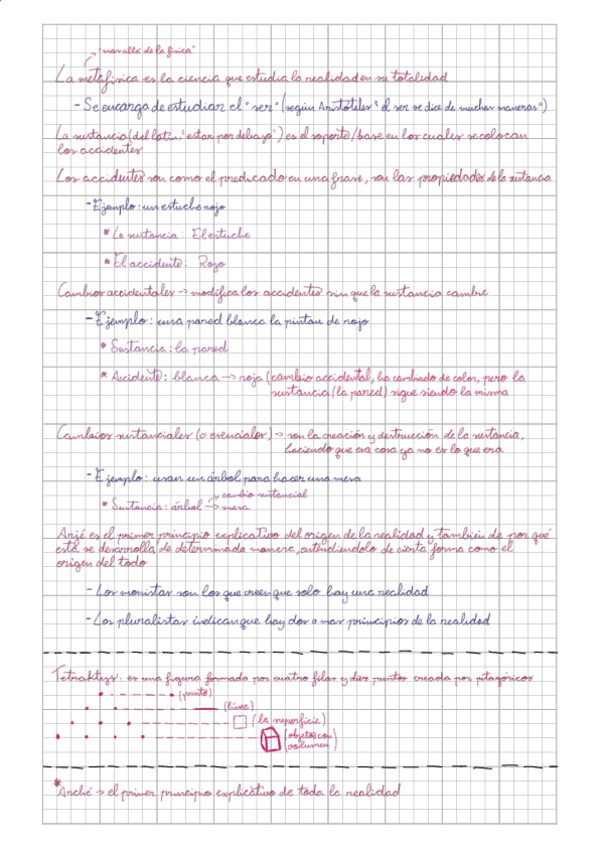 "mas allá de la física"
La metafísica es la ciencia que estudia la realidad en su totalidad
- Se encarga de estudiar el "ser" (según Aristóteles "el ser se dice de muchas maneras")
La sustancia (del latín: "estar por debajo") es el soporte/base en los cuales se colocan
los accidentes
Los accidentes son como el predicado en una frase, son las propiedades de la sustancia
- Ejemplo: un estuche rojo
* La sustancia: El estuche
* El accidente: Rojo
Cambios accidentales → modifica los accidentes sin que la sustancia cambie
- Ejemplo: una pared blanca la pintan de rojo
* Sustancia: la pared
* Accidente: blanca → roja (cambio accidental, ha cambiado de color, pero la
sustancia (la pared) sigue siendo la misma
Cambios sustanciales (o esenciales) → son la creación y destrucción de la sustancia,
haciendo que esa cosa ya no es lo que era
- Ejemplo: usan un árbol para hacer una mesa
cambio sustancial
* Sustancia: árbol → mesa
Arjé es el primer principio explicativo del origen de la realidad y también de por qué
está se desarrolla de determinada manera, entendiendolo de cierta forma como el
origen del todo
- Los monistas son los que creen que solo hay una realidad
- Los pluralistas indican que hay dos o mas principios de la realidad
Tetraktys: es una figura formada por cuatro filas y diez puntos creada por pitagóricos
(punto)
(línea)
(la superficie)
(objetos con
volumen)
* Arché → el primer principio explicativo de toda la realidad